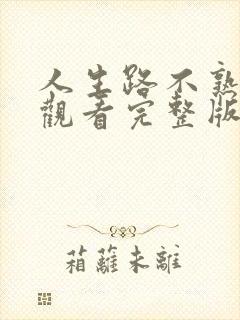 人生路不熟
觀看完整版
箱蘺未離